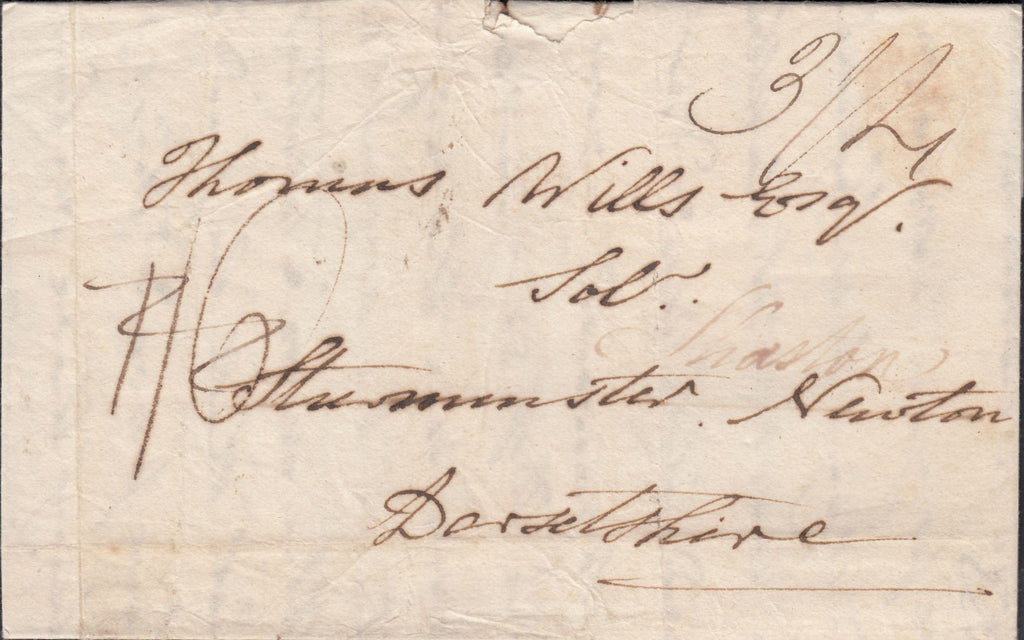 3/2
Thomas Wills Esqr.
Solr.
Shaston
Sturminster Newton
Dorsetshire